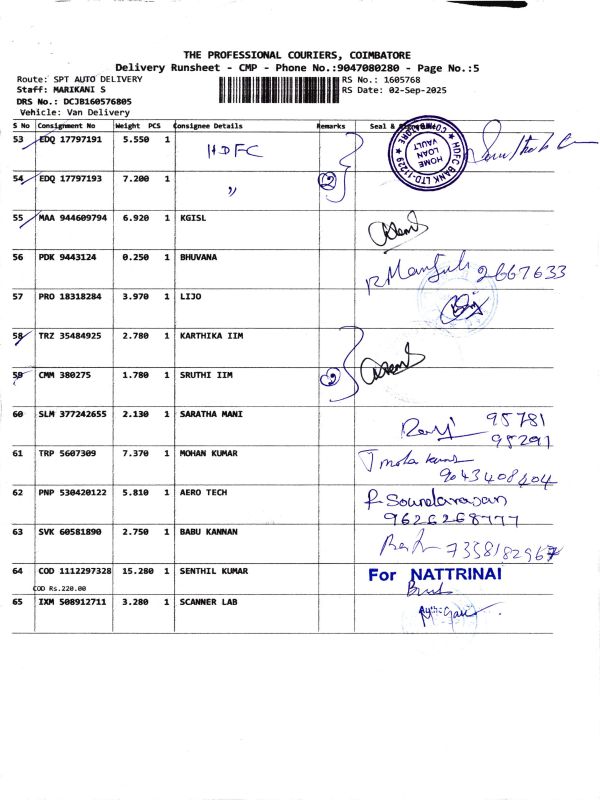 THE PROFESSIONAL COURIERS, COIMBATORE
Delivery Runsheet - CMP - Phone No.:9047080280 - Page No.:5
Route: SPT AUTO DELIVERY
RS No.: 1605768
Staff: MARIKANI S
RS Date: 02-Sep-2025
DRS No.: DCJB160576805
Vehicle: Van Delivery
S No Consignment No Weight PCS Consignee Details Remarks Seal &
53 EDQ 17797191 5.550 1 HDFC
HDFC BANK LTD-11229 ★ COIMBATORE ★
HOME LOAN VAULT
54 EDQ 17797193 7.200 1 " 2
55 MAA 944609794 6.920 1 KGISL
56 PDK 9443124 0.250 1 BHUVANA
R. 2667633
57 PRO 18318284 3.970 1 LIJO
58 TRZ 35484925 2.780 1 KARTHIKA IIM
59 CMM 380275 1.780 1 SRUTHI IIM 2
60 SLM 377242655 2.130 1 SARATHA MANI
95781
95291
61 TRP 5607309 7.370 1 MOHAN KUMAR
9043408404
62 PNP 530420122 5.810 1 AERO TECH
R Soundararajan
9626268777
63 SVK 60581890 2.750 1 BABU KANNAN
7358182967
64 COD 1112297328 15.280 1 SENTHIL KUMAR For NATTRINAI
COD Rs.220.00
65 IXM 508912711 3.280 1 SCANNER LAB